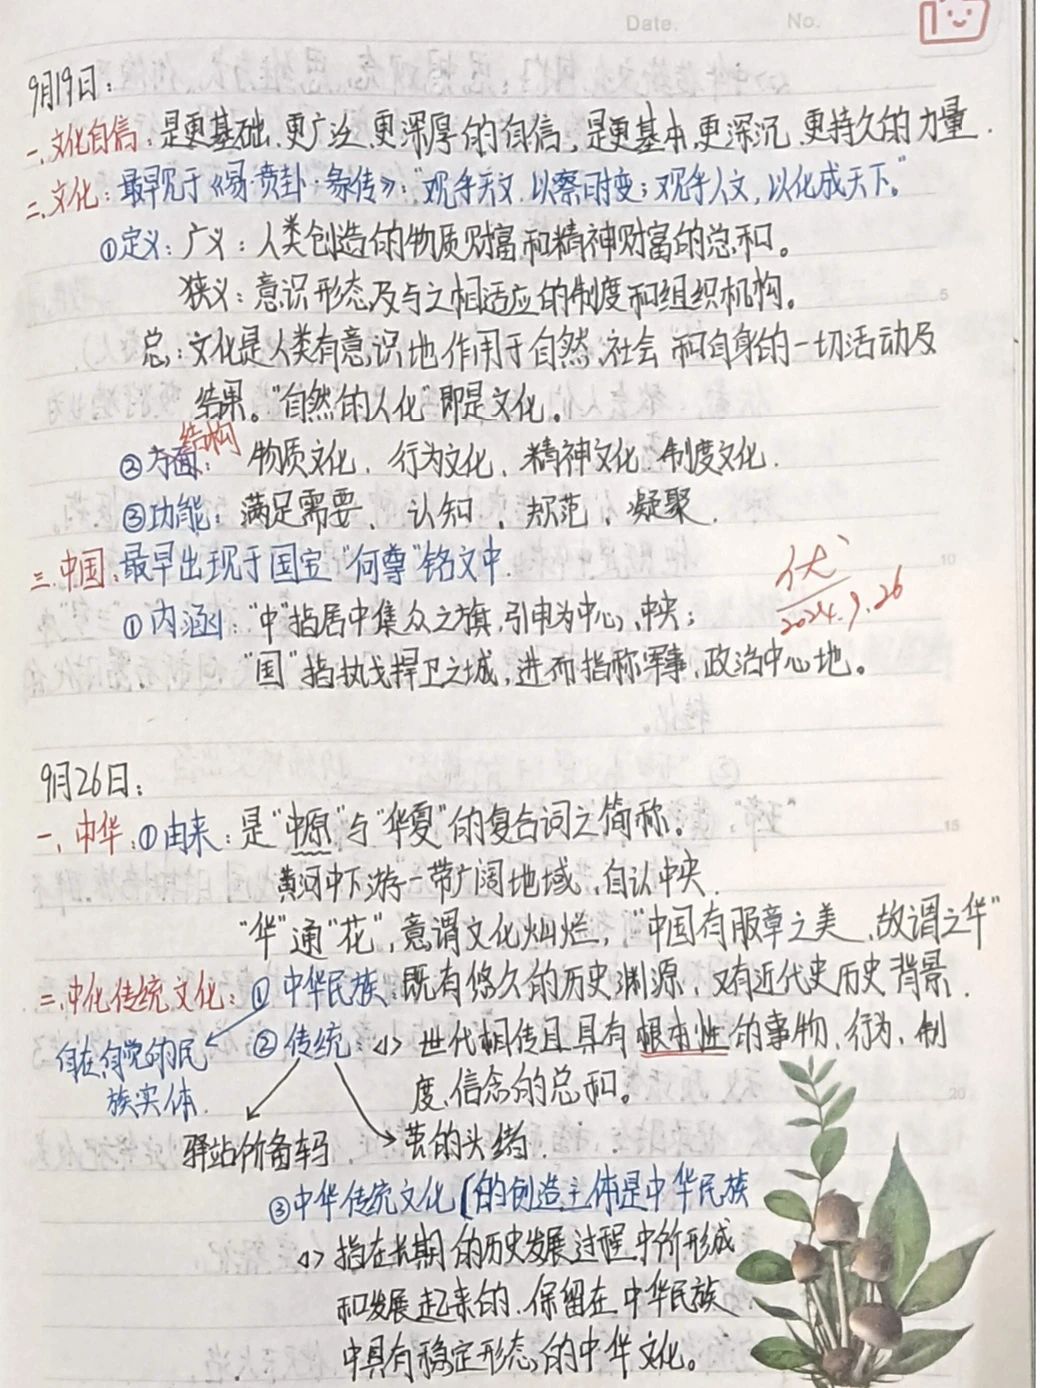 Date. No.
9月19日:
一、文化自信:是更基础、更广泛、更深厚的自信,是更基本、更深沉、更持久的力量.
二、文化:最早见于《易·贲卦·彖传》:“观乎天文,以察时变;观乎人文,以化成天下。”
①定义:广义:人类创造的物质财富和精神财富的总和。
狭义:意识形态及与之相适应的制度和组织机构。
总:文化是人类有意识地作用于自然、社会和自身的一切活动及
结果。“自然的人化”即是文化。
结构
②方面: 物质文化、行为文化、精神文化、制度文化.
③功能:满足需要、认知、规范、凝聚.
三、中国:最早出现于国宝“何尊”铭文中.
①内涵:“中”指居中集众之旗,引申为中心、中央;
“国”指执戈捍卫之城,进而指称军事、政治中心地。
2024.9.26
9月26日:
一、中华:①由来:是“中原”与“华夏”的复合词之简称。
黄河中下游一带广阔地域,自认中央.
“华”通“花”,意谓文化灿烂,“中国有服章之美,故谓之华”
二、中化传统文化:①中华民族:既有悠久的历史渊源,又有近代史历史背景.
自在自觉的民
族实体.
②传统:<1>世代相传且具有根本性的事物、行为、制
度、信念的总和。
驿站所备车马
茧的头绪.
③中华传统文化(的创造主体是中华民族
<1>指在长期的历史发展过程中所形成
和发展起来的、保留在中华民族
中具有稳定形态的中华文化。
5
10
15
20